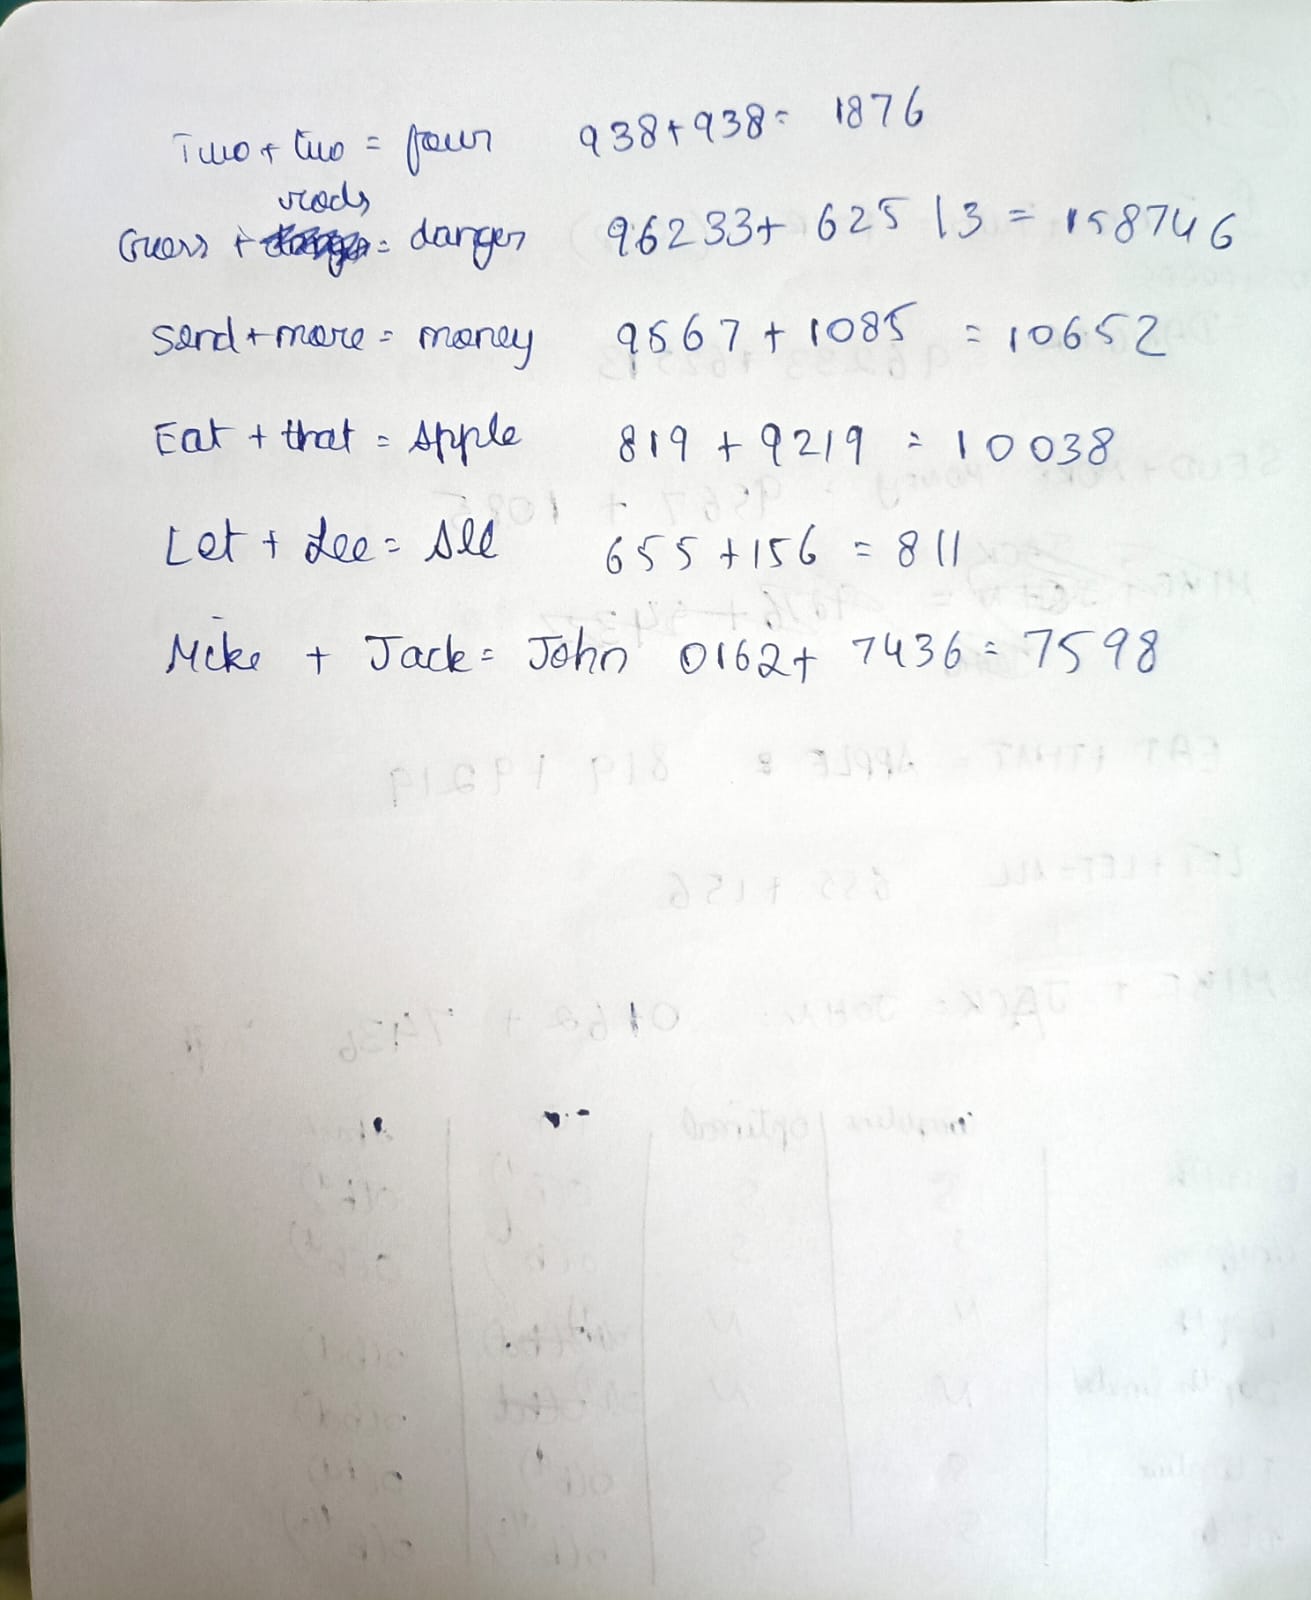 Two + two = four 938+938= 1876
roads
Cross + = danger 96233+ 62513 = 158746
Send + more = money 9567 + 1085 = 10652
Eat + that = Apple 819 + 9219 = 10038
Let + Lee = All 655 + 156 = 811
Mike + Jack = John 0162+ 7436 = 7598